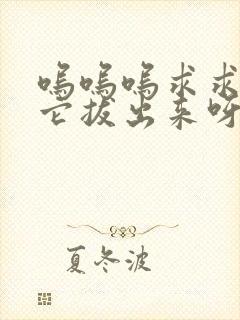 呜呜呜求求
它拔出来呀
夏冬波